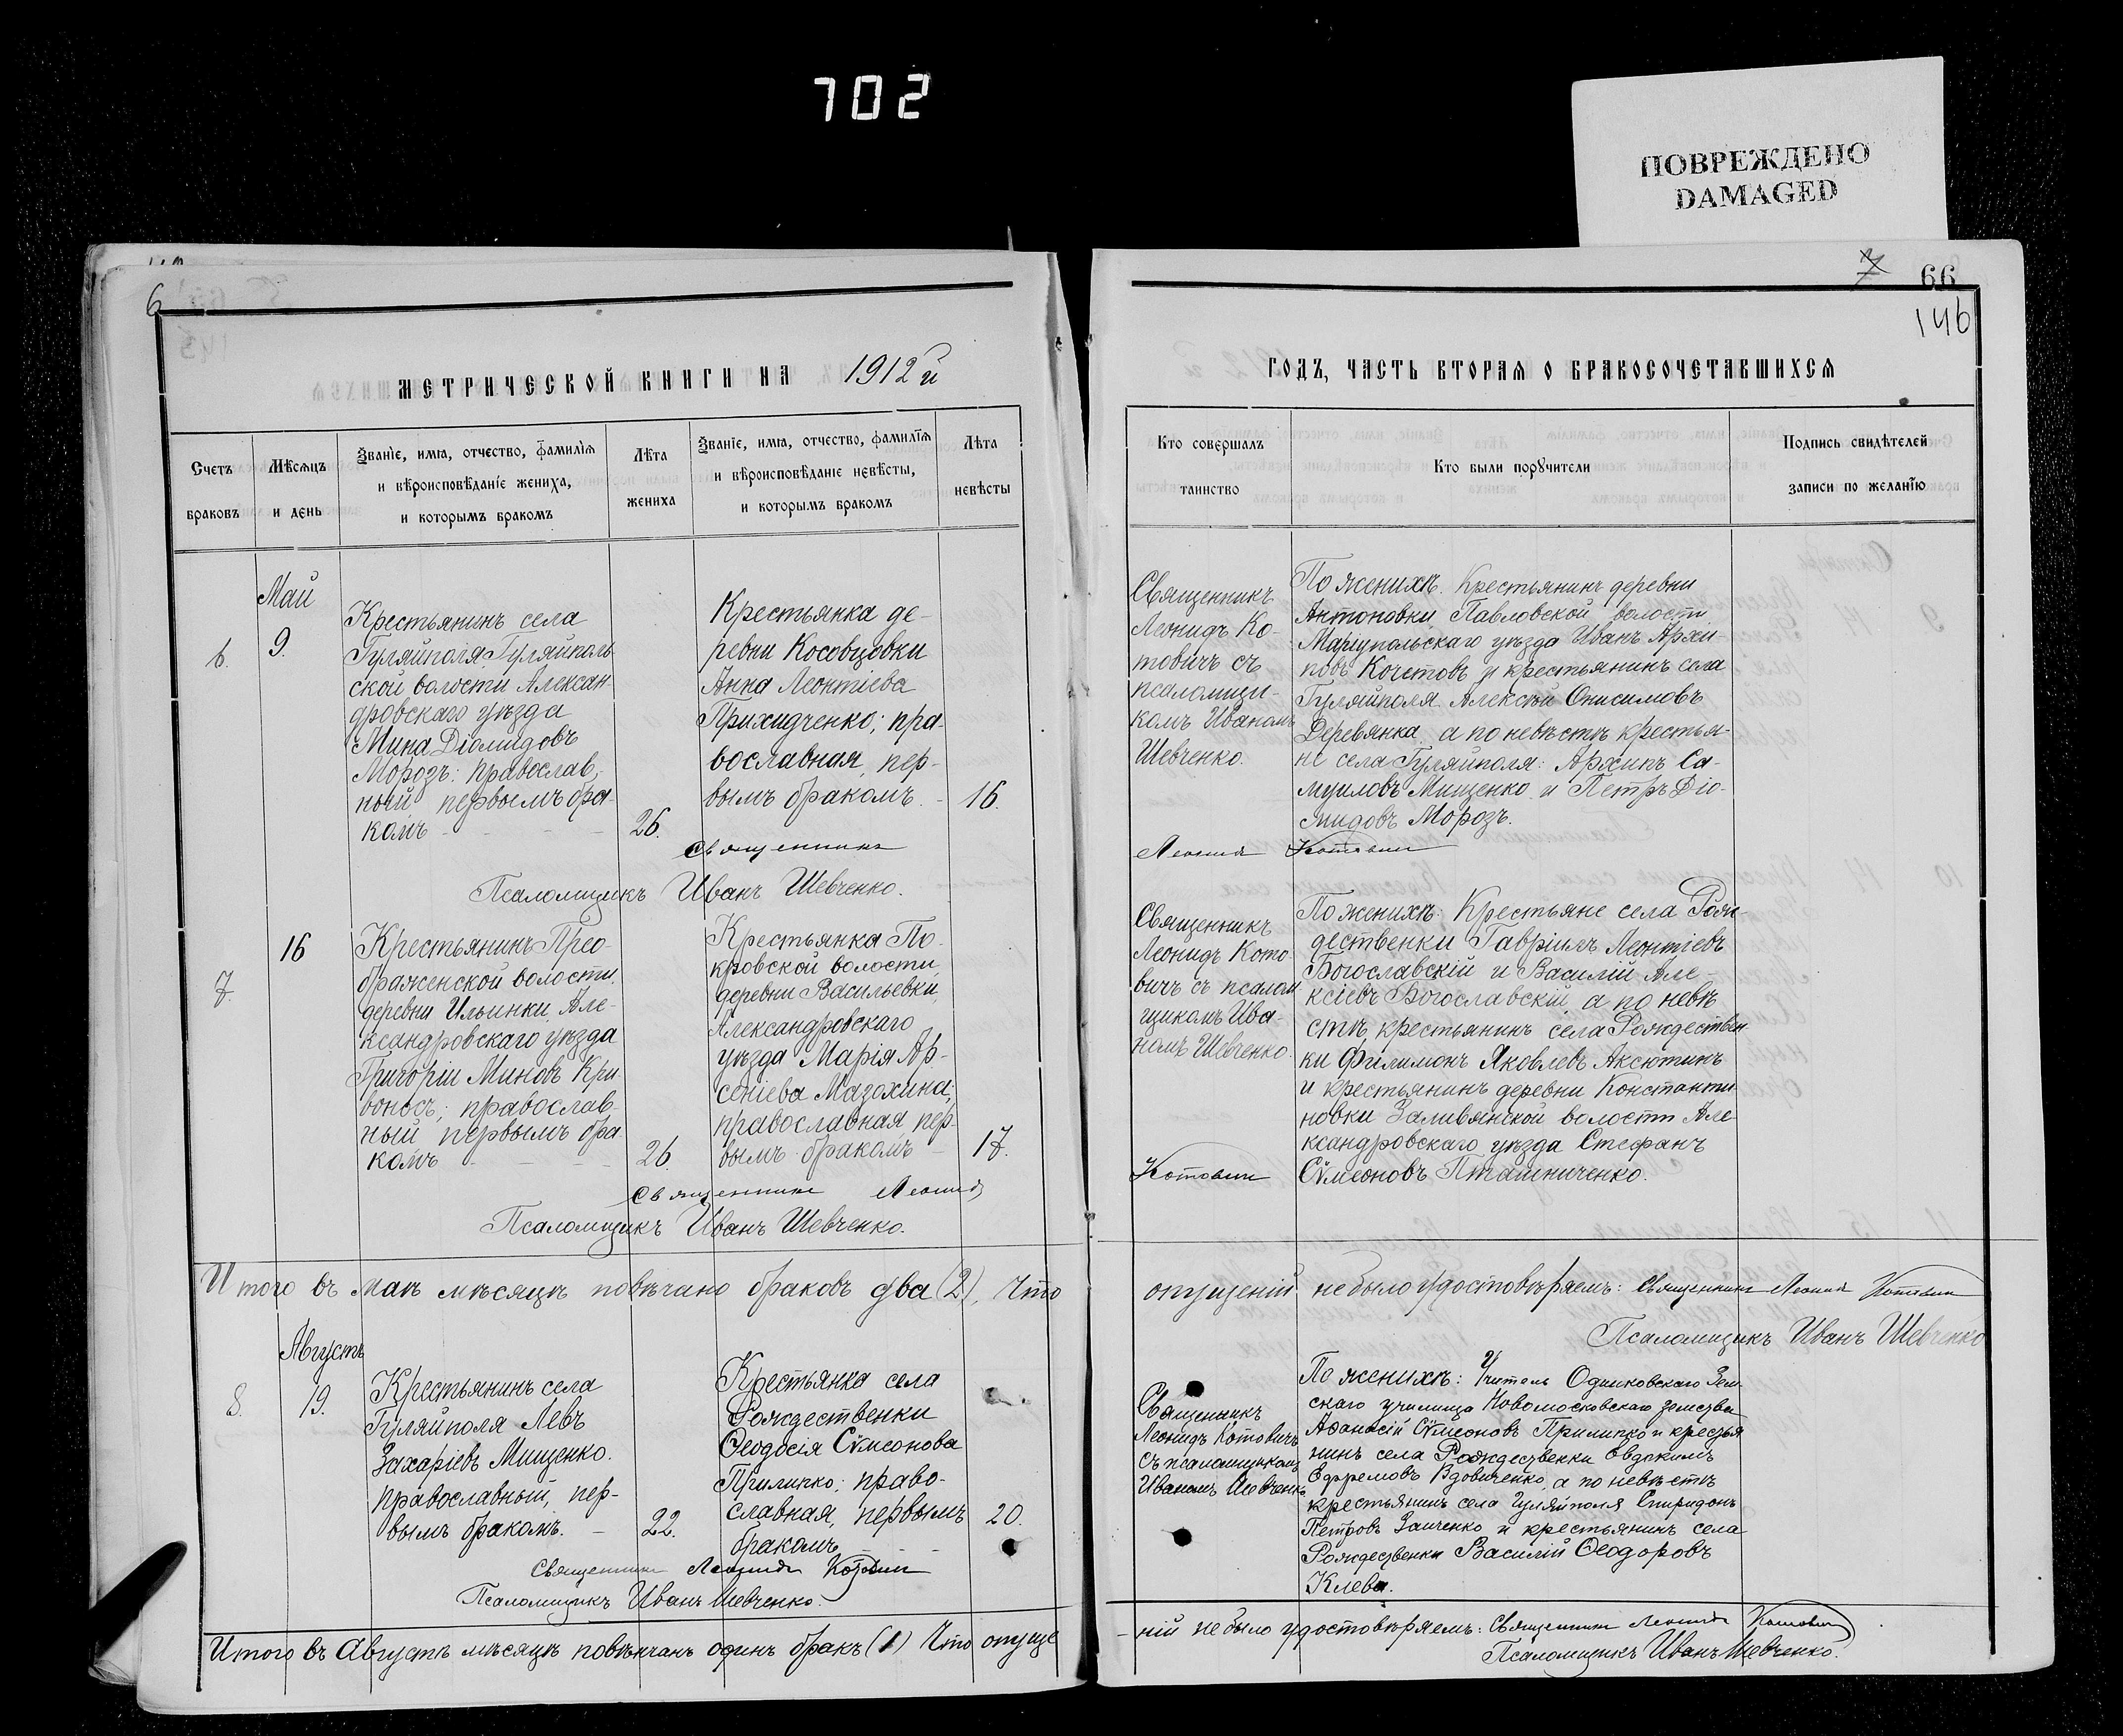 702
ПОВРЕЖДЕНО
DAMAGED
6
7
66
146
МЕТРИЧЕСКОЙ КНИГИ НА 1912й
ГОДЪ, ЧАСТЬ ВТОРАЯ О БРАКОСОЧЕТАВШИХСЯ
Счетъ
браковъ
Мѣсяцъ
и день
Званіе, имя, отчество, фамилія
и вѣроисповѣданіе жениха,
и которымъ бракомъ
Лѣта
жениха
Званіе, имя, отчество, фамилія
и вѣроисповѣданіе невѣсты,
и которымъ бракомъ
Лѣта
невѣсты
Кто совершалъ
таинство
Кто были поручители
Подпись свидѣтелей
записи по желанію
6.
Май
9.
Крестьянинъ села
Гуляйполя, Гуляйполь
ской волости Алексан
дровскаго уѣзда
Мина Діомидовъ
Морозъ: православ,
ный первымъ бра-
комъ
26.
Крестьянка де-
ревни Косовцовки
Анна Леонтіева
Прихидченко; пра-
вославная, пер-
вымъ бракомъ.
16.
Священникъ
Леонидъ Ко-
товичъ съ
псаломщи-
комъ Иваномъ
Шевченко.
По женихѣ: Крестьянинъ деревни
Антоновки Павловской волости
Маріупольскаго уѣзда Иванъ Архи-
повъ Кочетовъ и крестьянинъ села
Гуляйполя Алексѣй Онисимовъ
Деревянка, а по невѣстѣ крестья-
не села Гуляйполя: Архипъ Са-
муиловъ Мищенко и Петръ Діо-
мидовъ Морозъ.
Священникъ Леонидъ Котовичъ
Псаломщикъ Иванъ Шевченко.
7.
16
Крестьянинъ Прео-
браженской волости,
деревни Ильинки, Але-
ксандровскаго уѣзда
Григорій Миновъ Кри-
воносъ; православ-
ный, первымъ бра-
комъ
26.
Крестьянка По-
кровской волости,
деревни Васильевки,
Александровскаго
уѣзда Марія Ар-
сеніева Мазохина;
православная пер-
вымъ бракомъ
17.
Священникъ
Леонидъ Кото-
вичъ съ псалом
щикомъ Ива-
номъ Шевченко.
По женихѣ: Крестьяне села Рож-
дественки Гавріилъ Леонтіевъ
Богославскій и Василій Але-
ксіевъ Богославскій, а по невѣ
стѣ, крестьянинъ села Рождествен
ки Филимонъ Яковлевъ Аксютинъ
и крестьянинъ деревни Константи
новки Заливянской волости Але
ксандровскаго уѣзда Стефанъ
Сѵмеоновъ Пташниченко.
Священникъ Леонидъ Котовичъ
Псаломщикъ Иванъ Шевченко.
Итого въ маѣ мѣсяцѣ повѣчано браковъ два (2). Что опущеній не было удостовѣряемъ: Священникъ Леонидъ Котовичъ
Псаломщикъ Иванъ Шевченко
8.
Августъ
19.
Крестьянинъ села
Гуляйполя Левъ
Захаріевъ Мищенко.
Православный, пер-
вымъ бракомъ.
22.
Крестьянка села
Рождественки
Ѳеодосія Сѵмеонова
Прилипко: право-
славная, первымъ
бракомъ
20.
Священникъ
Леонидъ Котовичъ
съ псаломщикомъ
Иваномъ Шевченко
По женихѣ: Учитель Одинковскаго Зем-
скаго училища Новомосковскаго земства
Аѳанасій Сѵмеоновъ Прилипко и крестья
нинъ села Рождественки Евдокимъ
Ефремовъ Вдовиченко, а по невѣстѣ
крестьянинъ села Гуляйполя Спиридонъ
Петровъ Заиченко и крестьянинъ села
Рождественки Василій Ѳеодоровъ
Клева.
Священникъ Леонидъ Котовичъ
Псаломщикъ Иванъ Шевченко.
Итого въ Августѣ мѣсяцѣ повѣнчанъ одинъ бракъ (1) Что опуще-ній не было удостовѣряемъ: Священникъ Леонидъ Котовичъ
Псаломщикъ Иванъ Шевченко.